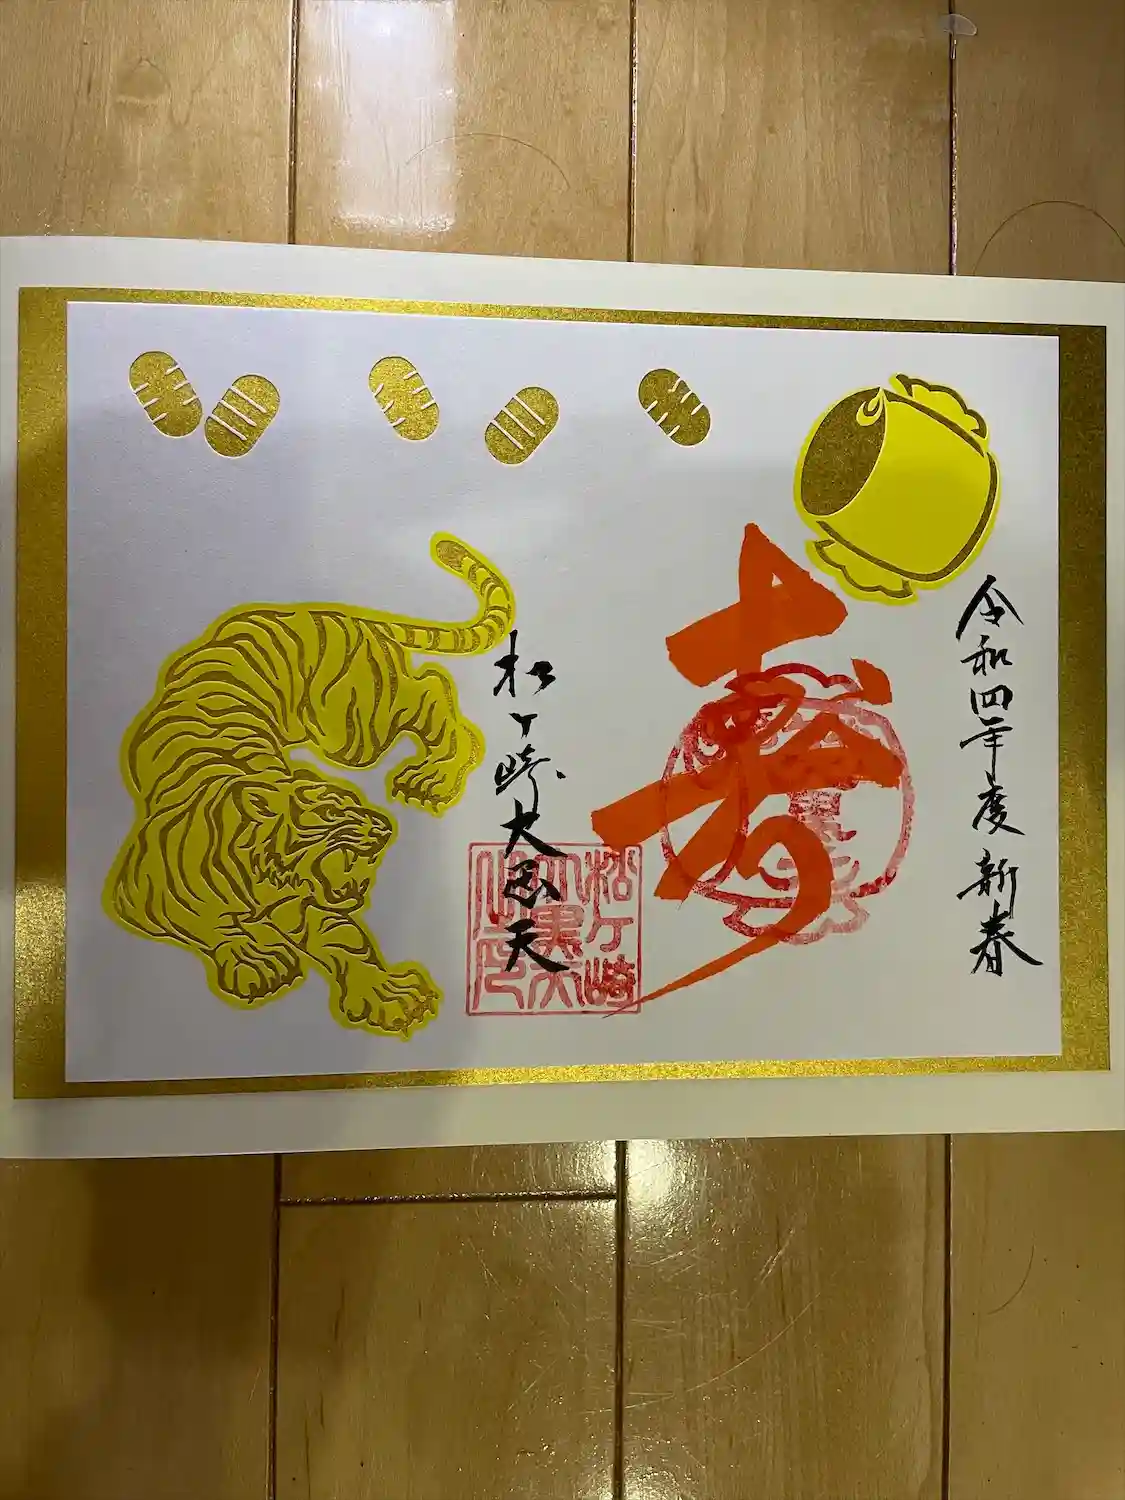 令和四年度 新春
寿
松ヶ崎大黒天
松ヶ崎
大黒天